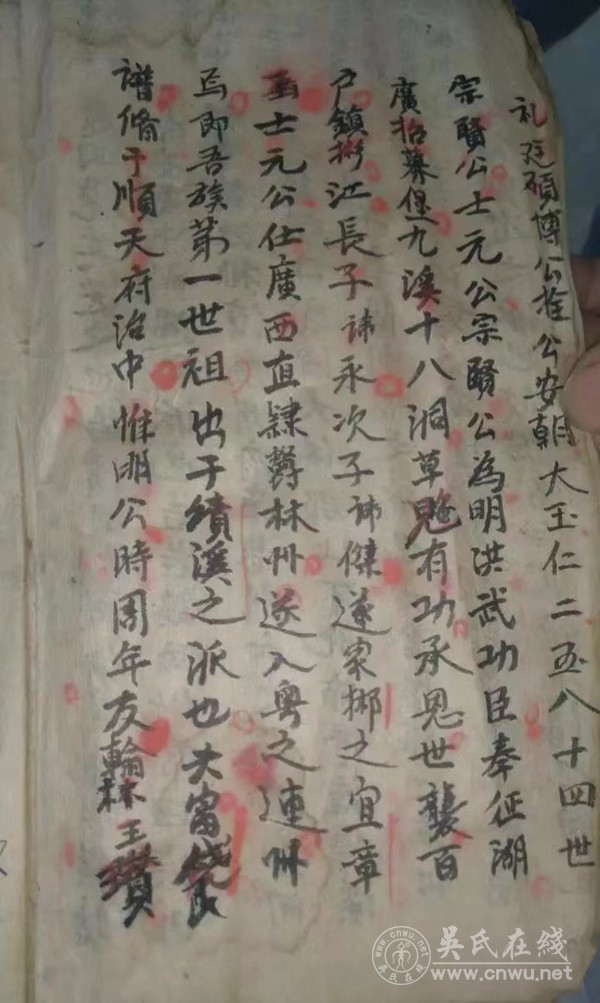 礼廷碩博公拴公安朝大玉仁二五八十四世
宗賢公士元公宗賢公為明洪武功臣奉征湖
廣招慕堡九溪十八洞草有功承恩世襲百
户鎮彬江長子諱永次子諱傑遂家郴之宜章
士元公仕廣西直隸欝林州遂入粤之連州
焉即吾族第一世祖出于績溪之派也大
譜脩于順天府治中惟明公時周年友翰林王瓚
吴氏在线
www.cnwu.net